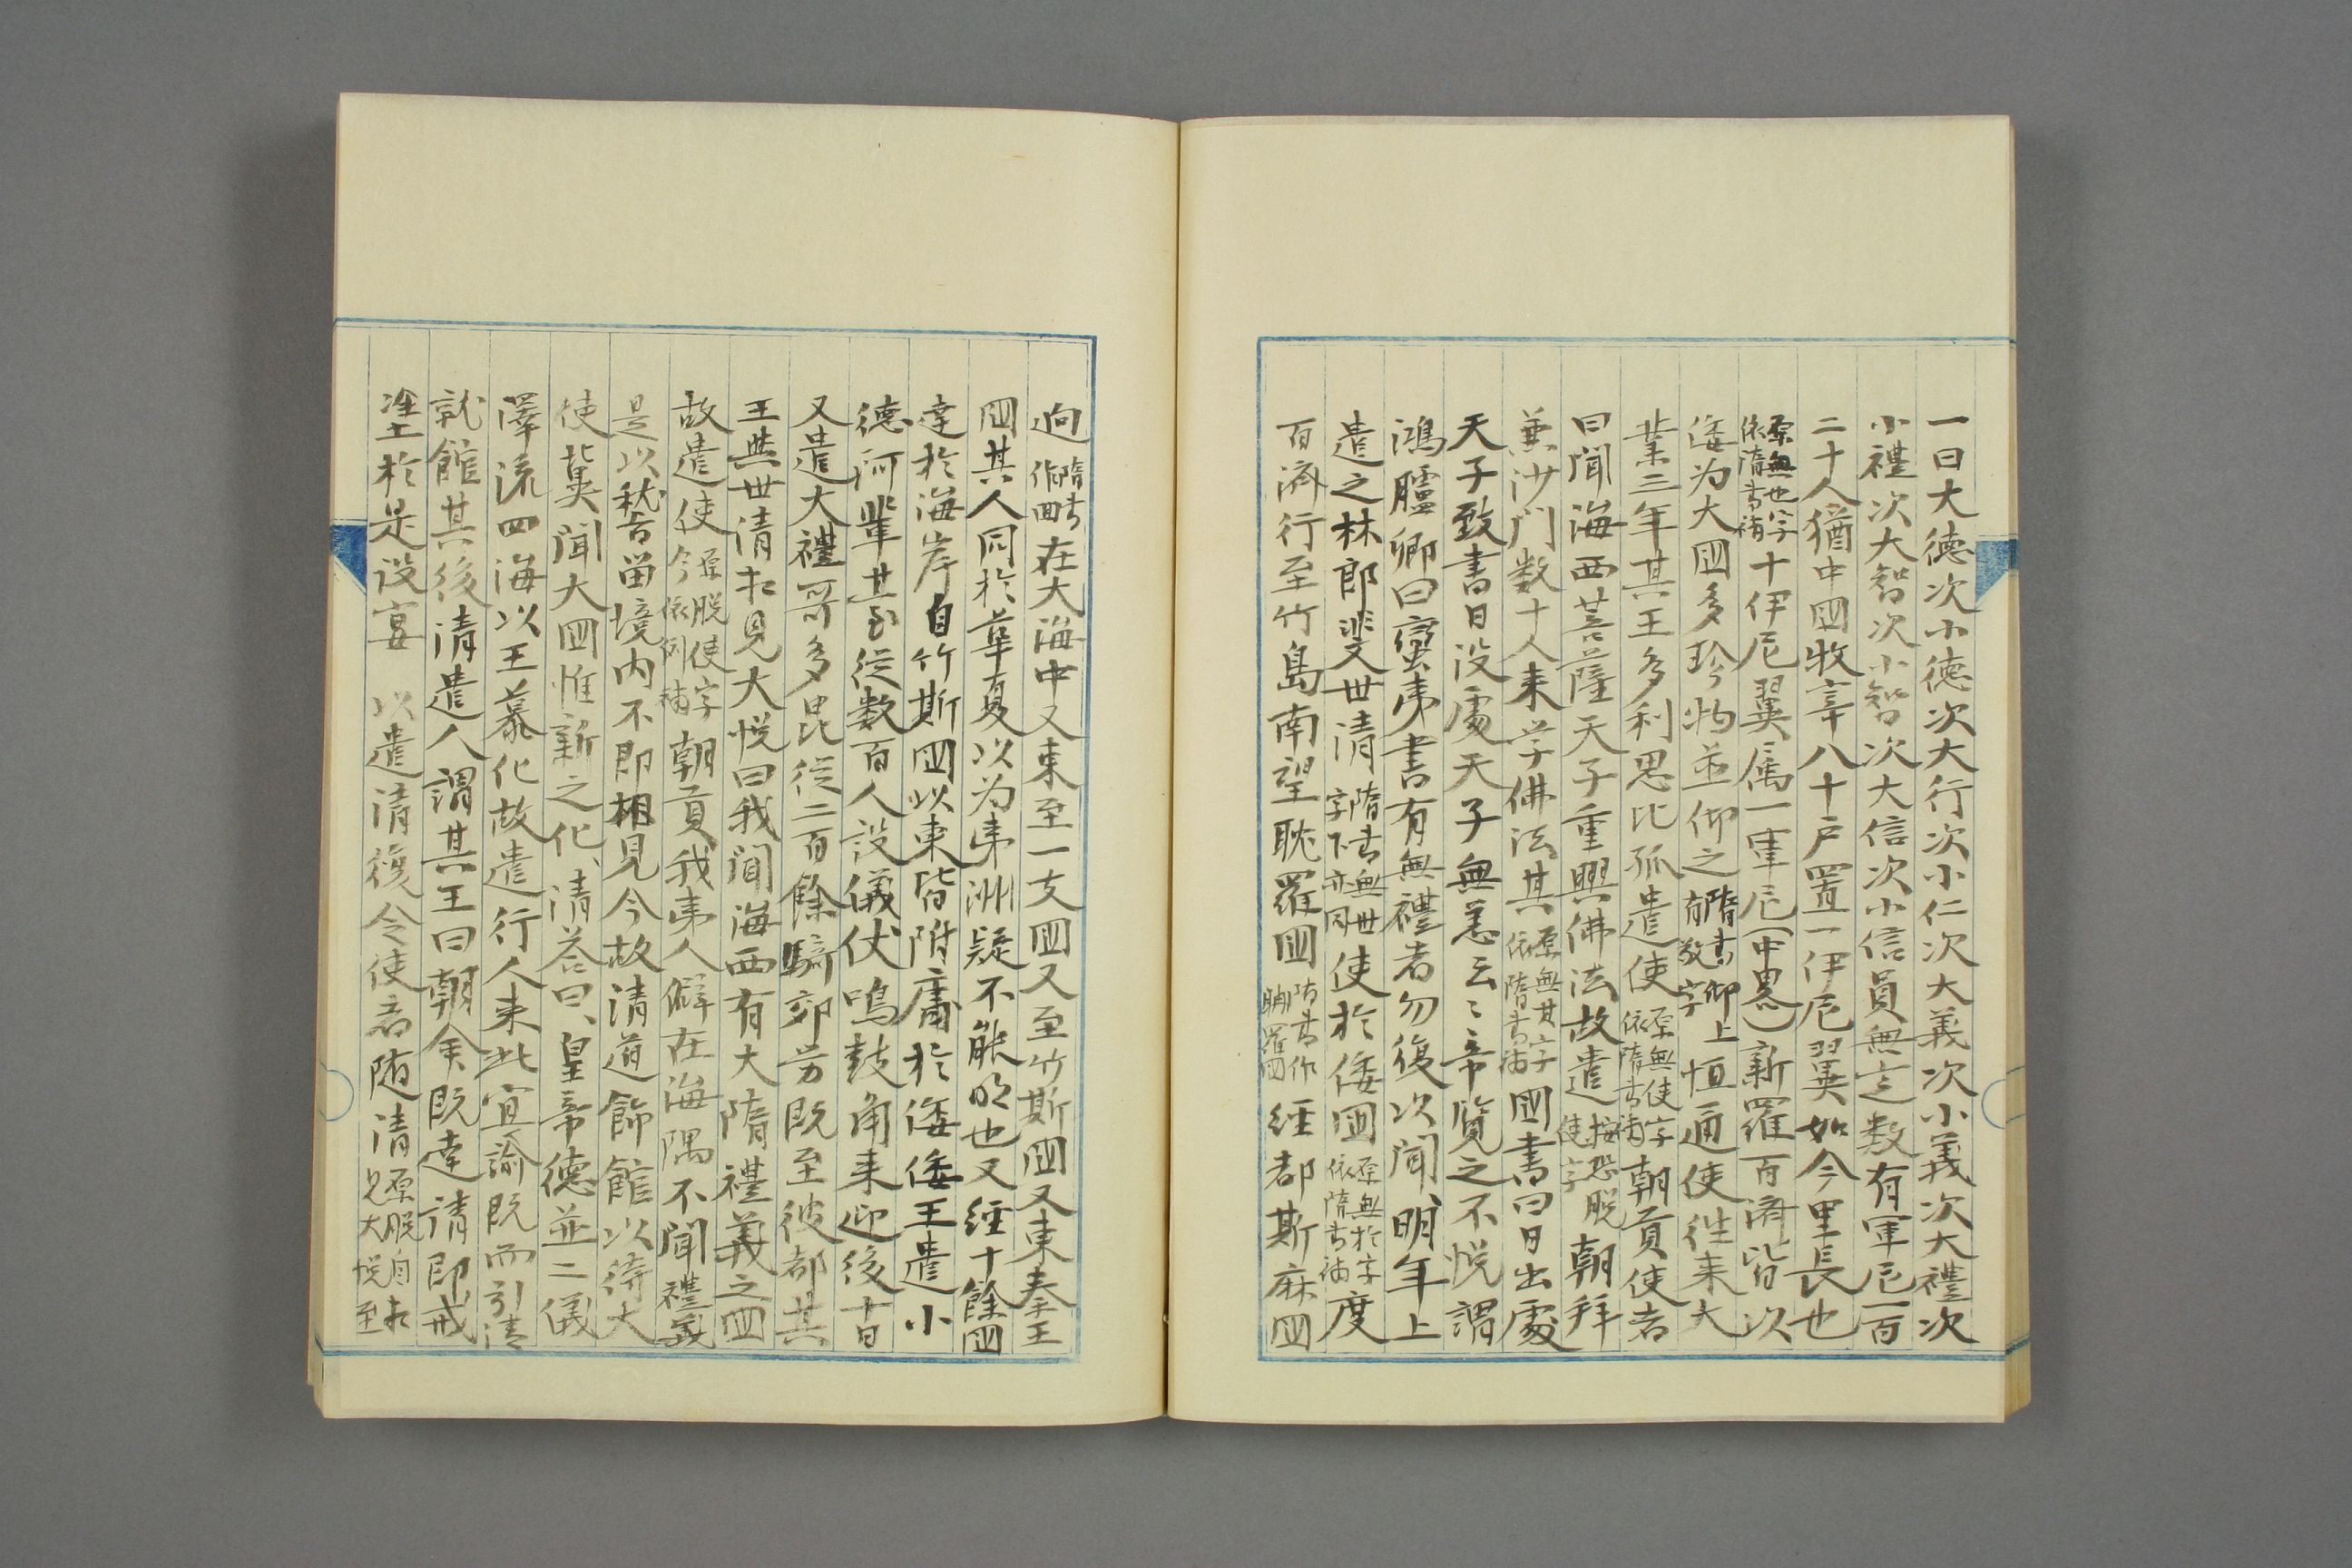 一曰大德次小德次大行次小仁次大義次小義次大禮次
小禮次大智次小智次大信次小信員無定数有軍尼一百
二十人猶中國牧宰八十戶置一伊尼翼如今里長也
原無也字依隋書補十伊尼翼属一軍尼(中畧)新羅百濟皆以
倭为大國多珍物並仰之隋書仰上有敬字恒通使往来大
業三年其王多利思比孤遣使原無使字依隋書補朝貢使者
曰聞海西菩薩天子重興佛法故遣按恐脱使字朝拜
兼沙门数十人来学佛法其原無其字依隋書補國書曰日出處
天子致書日没處天子無恙云〻帝覧之不悦謂
鴻臚卿曰蠻夷書有無禮者勿復次聞明年上
遣之林郎斐世清隋書無世字下亦同使於倭國原無於字依隋書補度
百濟行至竹島南望耽羅國隋書作䏈羅國经都斯麻國
逈隋書作迴在大海中又東至一支國又至竹斯國又東秦王
國其人同於華夏以为夷洲疑不能明也又经十餘國
達於海岸自竹斯國以東皆附庸於倭倭王遣小
德阿輩臺従数百人設儀仗鳴鼓角来迎後十日
又遣大禮哥多毘従二百餘騎郊労既至彼都其
王與世清相見大悦曰我聞海西有大隋禮義之國
故遣使原脱使字今依例補朝貢我夷人僻在海隅不聞禮義
是以稽留境内不即相見今故清道飾館以待大
使冀聞大國惟新之化、清答曰、皇帝德並二儀
澤流四海以王慕化故遣行人来此宣諭既而引清
就館其後清遣人謂其王曰朝命既達請即戒
塗於是設宴 以遣清復令使者随清原脱自相見大悦至